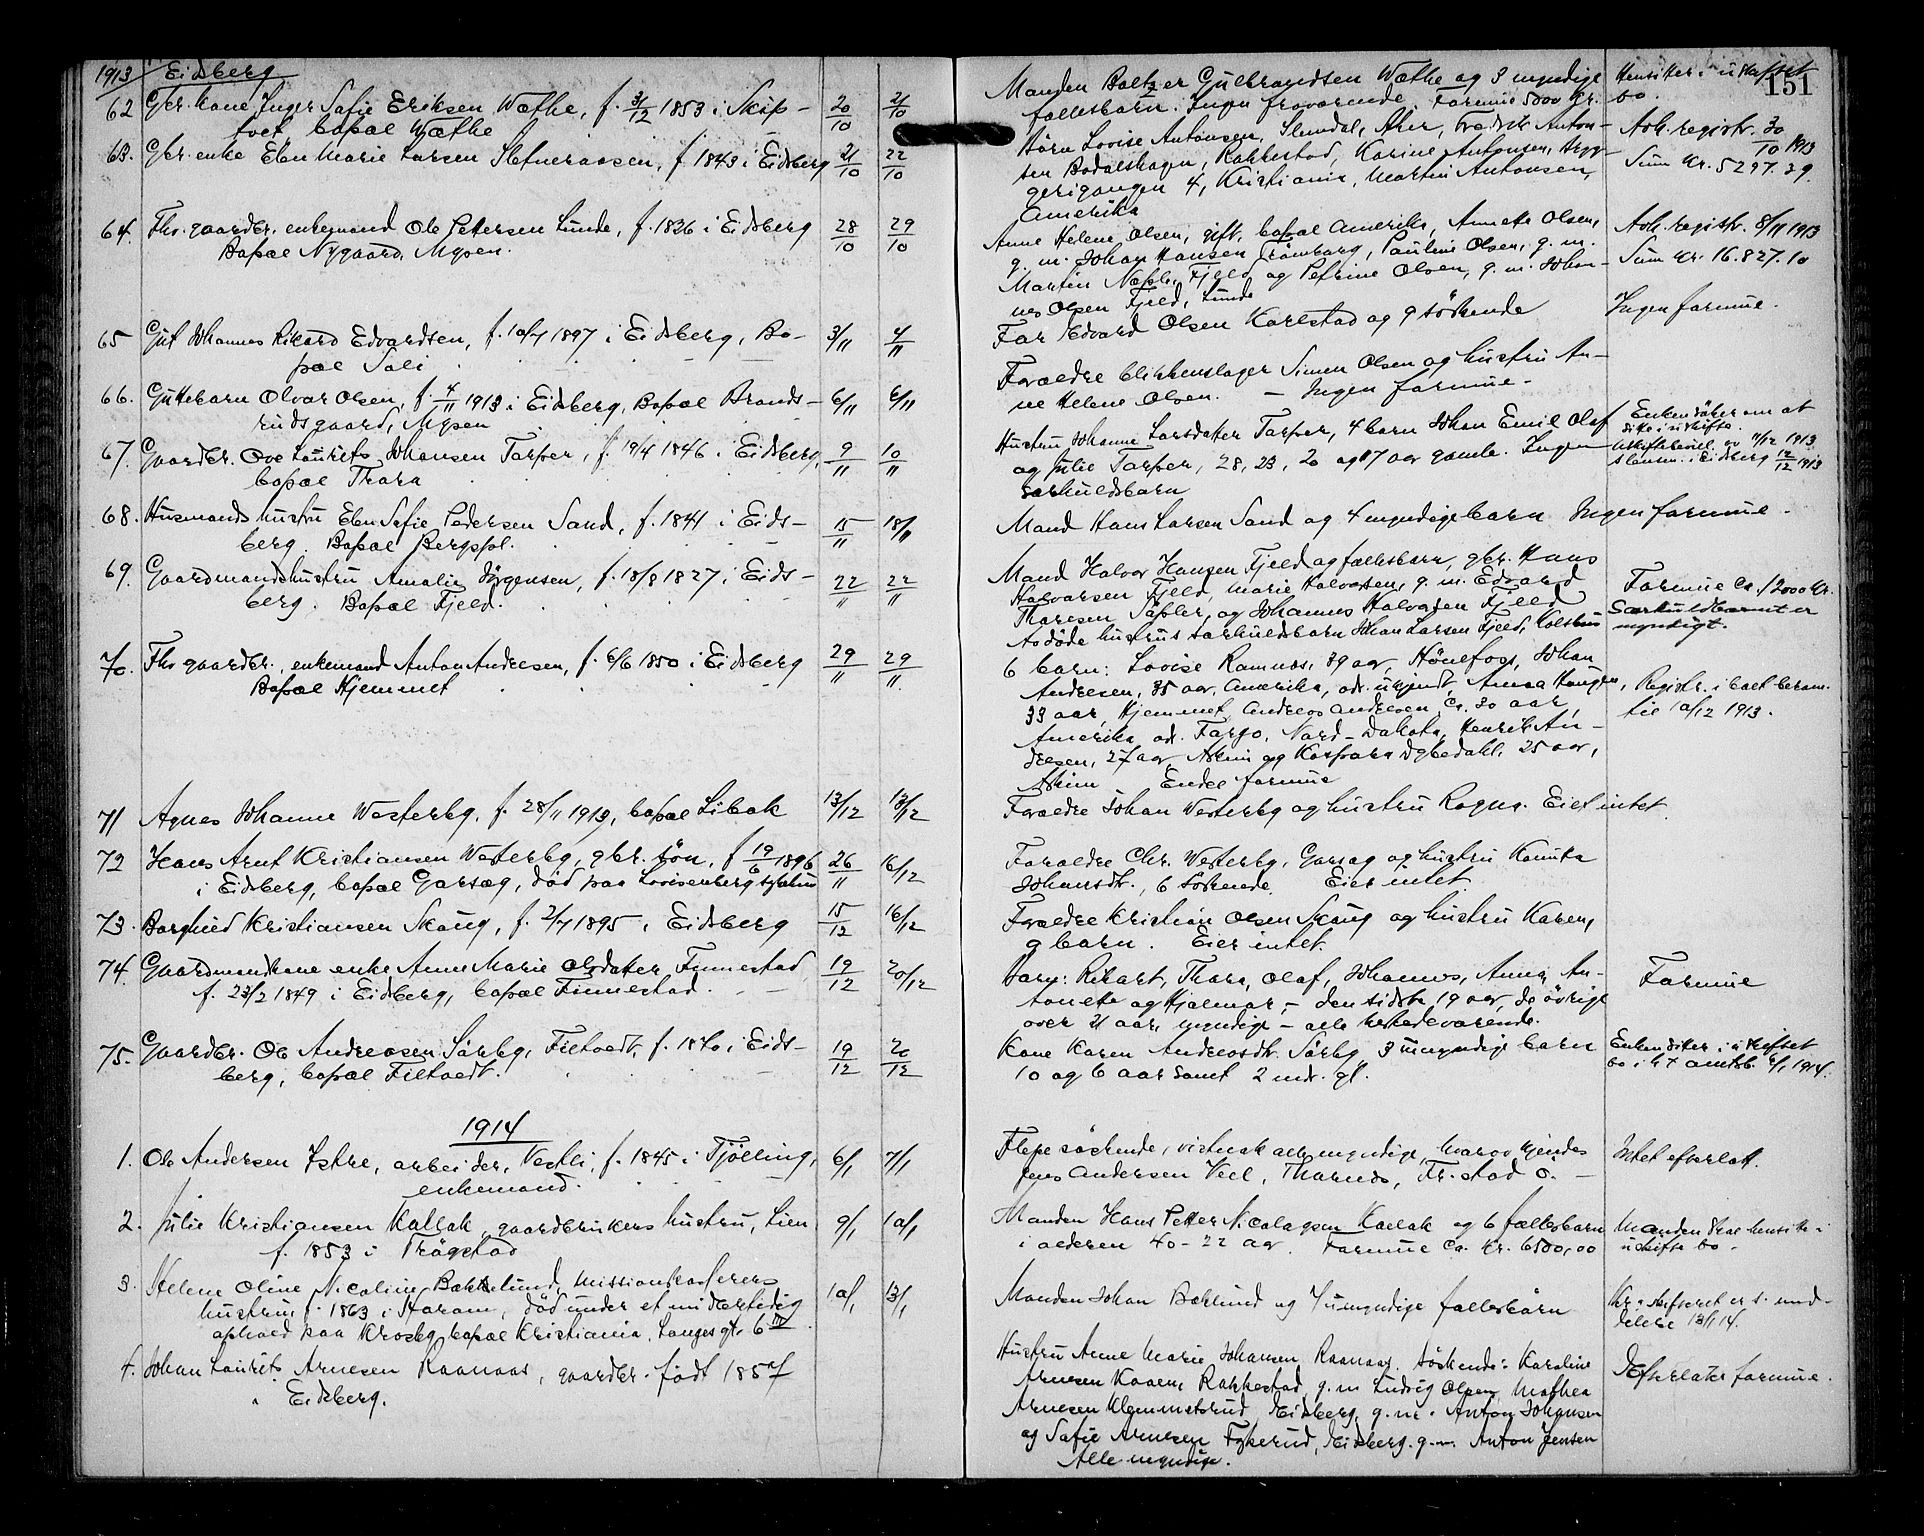 1913 Eidsberg
151
62 Gbr. kone Inger Sofie Eriksen Wæthe, f. 31/12 1853 i Skip- 20/10 21/10
tvet, bopæl Wæthe
Manden Baltzer Gulbrandsen Wæthe og 3 myndige
fællesbarn. Ingen fraværende. Formue 5000 Kr.
Hensitter i uskiftet
bo.
63. Gbr. enke Elen Marie Larsen f. 1843 i Eidsberg 21/10 22/10
børn Lovise Antonsen, Aker, Fredrik Anton-
sen Bodalshagen, Rakkestad, Karine Antonsen, Bryg-
gerigangen 4, Kristiania, Martin Antonsen,
Amerika
Avh. registr. 30/10 1913
Sum Kr. 5297.39.
64. Fhv. gaardbr. enkemand Ole Petersen Lunde, f. 1826 i Eidsberg 28/10 29/10
Bopæl Nygaard, Mysen.
Anne Helene Olsen, gift, bopæl Amerika, Annette Olsen,
g. m. Johan Hansen Trømborg, Pauline Olsen, g. m.
Martin Fjeld og Petrine Olsen, g. m. Johan-
nes Olsen Fjeld, Lunde
Avh. registr. 8/11 1913
Sum Kr. 16.827.10
65 Gut Johannes Rikard Edvardsen, f. 10/7 1897 i Eidsberg, Bo- 3/11 4/11
pæl Soli
Far Edvard Olsen Karlstad og 9 søskende
Ingen formue.
66. Guttebarn Olvar Olsen, f. 4/11 1913 i Eidsberg, Bopæl Brands- 6/11 6/11
rudsgaard, Mysen
Forældre blikkenslager Simen Olsen og hustru An-
ne Helene Olsen. — Ingen formue.
67. Gaardbr. Ove Laurits Johansen Torper, f. 19/4 1846 i Eidsberg, 9/11 10/11
bopæl Thora
Hustru Johanne Larsdatter Torper, 4 barn Johan Emil Olaf
og Julie Torper, 28, 23, 20 og 17 aar gamle. Ingen
særkuldsbarn
Enken søker om at
sitte i uskifte.
Uskiftebevil. av 11/12 1913
i Eidsberg 12/12 1913
68. Husmands hustru Elen Sofie Pedersen Sand, f. 1841 i Eids- 15/11 18/11
berg. Bopæl Bergspl.
Mand Hans Larsen Sand og 4 myndige barn Ingen formue.
69. Gaardmandshustru Amalie Jørgensen, f. 18/8 1827 i Eids- 22/11 22/11
berg. Bopæl Fjeld.
Mand Halvor Hansen Fjeld og fællesbarn, gbr. Hans
Halvorsen Fjeld, Marie Halvorsen, g. m. Edvard
Thoresen og Johannes Halvorsen Fjeld
Avdøde hustrus særkuldsbarn Johan Larsen Fjeld,
Formue ca. 12000 Kr.
Særkuldbarnet er
myndigt.
70. Fhv gaardbr., enkemand Anton Andresen, f. 6/6 1850 i Eidsberg 29/11 29/11
Bopæl Hjemmet
6 barn: Lovise Ramnæs, 39 aar, Hønefos, Johan
Andresen, 35 aar, Amerika, adr. ukjendt, Anna Haugen,
33 aar, Hjemmet, Andreas Andresen, ca. 30 aar,
Amerika, adr. Fargo, Nord-Dakota, Henrik An-
dresen, 27 aar, Askim og Kaspara Dybedahl, 25 aar,
Askim Endel formue
Registr. i boet beram.
til 10/12 1913.
71 Agnes Johanne Westerby, f. 28/11 1913, bopæl Libak 13/12 13/12
Forældre Johan Westerby og hustru Ragna. Eiet intet
72 Hans Arnt Kristiansen Westerby, gbr. søn, f 19/6 1896 26/11 16/12
i Eidsberg, bopæl Garsæg, død paa Lovisenberg sykehus
Forældre Chr. Westerby, Garsæg og hustru
Johansdt., 6 søskende. Eier intet
73. Borghild Kristiansen Skaug, f. 2/7 1895 i Eidsberg 15/12 16/12
Forældre Kristian Olsen Skaug og hustru Karen,
9 barn. Eier intet.
74. Gaardmandskone enke Anne Marie Olsdatter Finnestad 19/12 20/12
f. 23/2 1849 i Eidsberg, bopæl Finnestad.
Barn: Rikart, Thora, Olaf, Johannes, Anna, An-
tonette og Hjalmar, – den sidste 19 aar, de øvrige
over 21 aar, myndige – alle tilstedeværende.
Formue
75. Gaardbr. Ole Andreasen Sørby, Filtvedt, f. 1870 i Eids- 19/12 20/12
berg, bopæl Filtvedt.
Kone Karen Andreasdt. Sørby 3 umyndige barn
10 og 6 aar samt 2 mdr. gl.
Enken sitter i uskiftet
bo i h t amtsb. 6/1 1914.
1914
1. Ole Andersen Istre, arbeider, Vestli, f. 1845 i Tjølling, 6/1 7/1
enkemand.
Flere søskende, vistnok alle myndige, hvorav kjendes
Jens Andersen Veel, Fr.stad ö. —
Intet efterlatt.
2. Julie Kristiansen Kallak, gaardbrukers hustru, Lien 9/1 10/1
f. 1853 i Trøgstad
Manden Hans Petter Nicolaysen Kallak og 6 fællesbarn
i alderen 40–22 aar. Formue ca. kr. 6500,00
Manden skal hensitte i
uskifte bo.
3. Helene Oline Nicoline Bækkelund, missionskasserers 10/1 13/1
hustru, f. 1863 i Haram, død under et midlertidig
ophold paa Krosby, bopæl Kristiania, Langes gt. 6 III
Manden Johan Bæklund og 7 umyndige fællesbørn
Kr.a skifteret er s. med-
delelse 13/1 14.
4. Johan Laurits Arnesen Raanaas, gaardbr. født 1857
i Eidsberg.
Hustru Anne Marie Johansen Raanaas, søskende: Karoline
Arnesen Kaaen, Rakkestad, g.m Ludvig Olsen, Mathea
Arnesen Klemmetsrud, Eidsberg, g. m. Anton Johansen
og Sofie Arnesen Fykerud, Eidsberg. g. m. Anton Jensen
Alle myndige.
Efterlater formue.